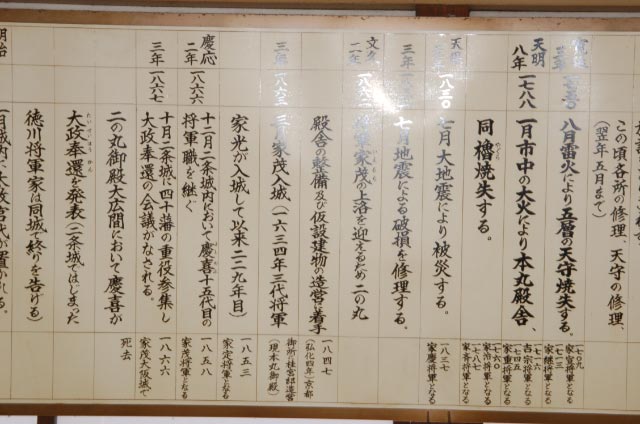 この頃各所の修理、天守の修理、
(翌年五月まで)
八月雷火により五層の天守焼失する。
天明
八年
一七八八
一月市中の大火により本丸殿舎、
同櫓焼失する。
七月大地震により被災する。
三年
七月地震による破損を修理する。
文久
二年
将軍家茂の上洛を迎えるため二の丸
殿舎の整備及び仮設建物の造営に着手
三年
一八六三
三月家茂入城(一六三四年三代将軍
家光が入城して以来二二九年目)
慶応
二年
一八六六
十二月二条城内において慶喜十五代目の
将軍職を継ぐ
三年
一八六七
十月二条城に四十藩の重役参集し
大政奉還の会議がなされる。
二の丸御殿大広間において慶喜が
大政奉還を発表(二条城ではじまった
徳川将軍家は同城で終りを告げる)
明治
一月城内に太政官代が置かれる。
一七〇九
家宣将軍となる
一七一三
家継将軍となる
一七一六
吉宗将軍となる
一七四五
家重将軍となる
一七六〇
家治将軍となる
一七八七
家斉将軍となる
一八三七
家慶将軍となる
一八四七
(弘化四年)京都
御所・桂宮邸造営
(現本丸御殿)
一八五三
家定将軍となる
一八五八
家茂将軍となる
一八六六
家茂大阪城で
死去